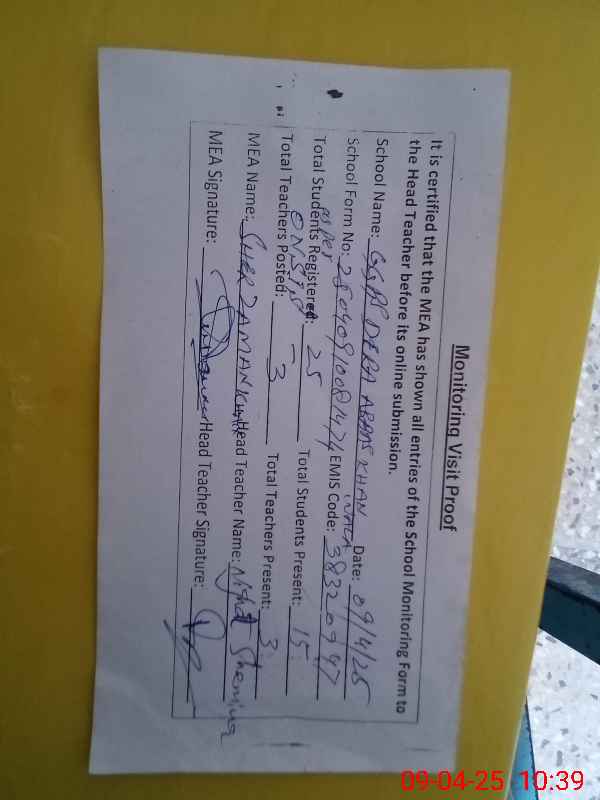 Monitoring Visit Proof
It is certified that the MEA has shown all entries of the School Monitoring Form to
the Head Teacher before its online submission.
School Name: GGPS DERA ABBAS KHAN WALA Date: 09/4/25
School Form No: EMIS Code: 38320947
as per
Total Students Registered: 25 Total Students Present: 15
Total Teachers Posted: 3 Total Teachers Present: 3
MEA Name: SHER ZAMAN KHAN Head Teacher Name: Nighat
MEA Signature: Head Teacher Signature:
09-04-25 10:39